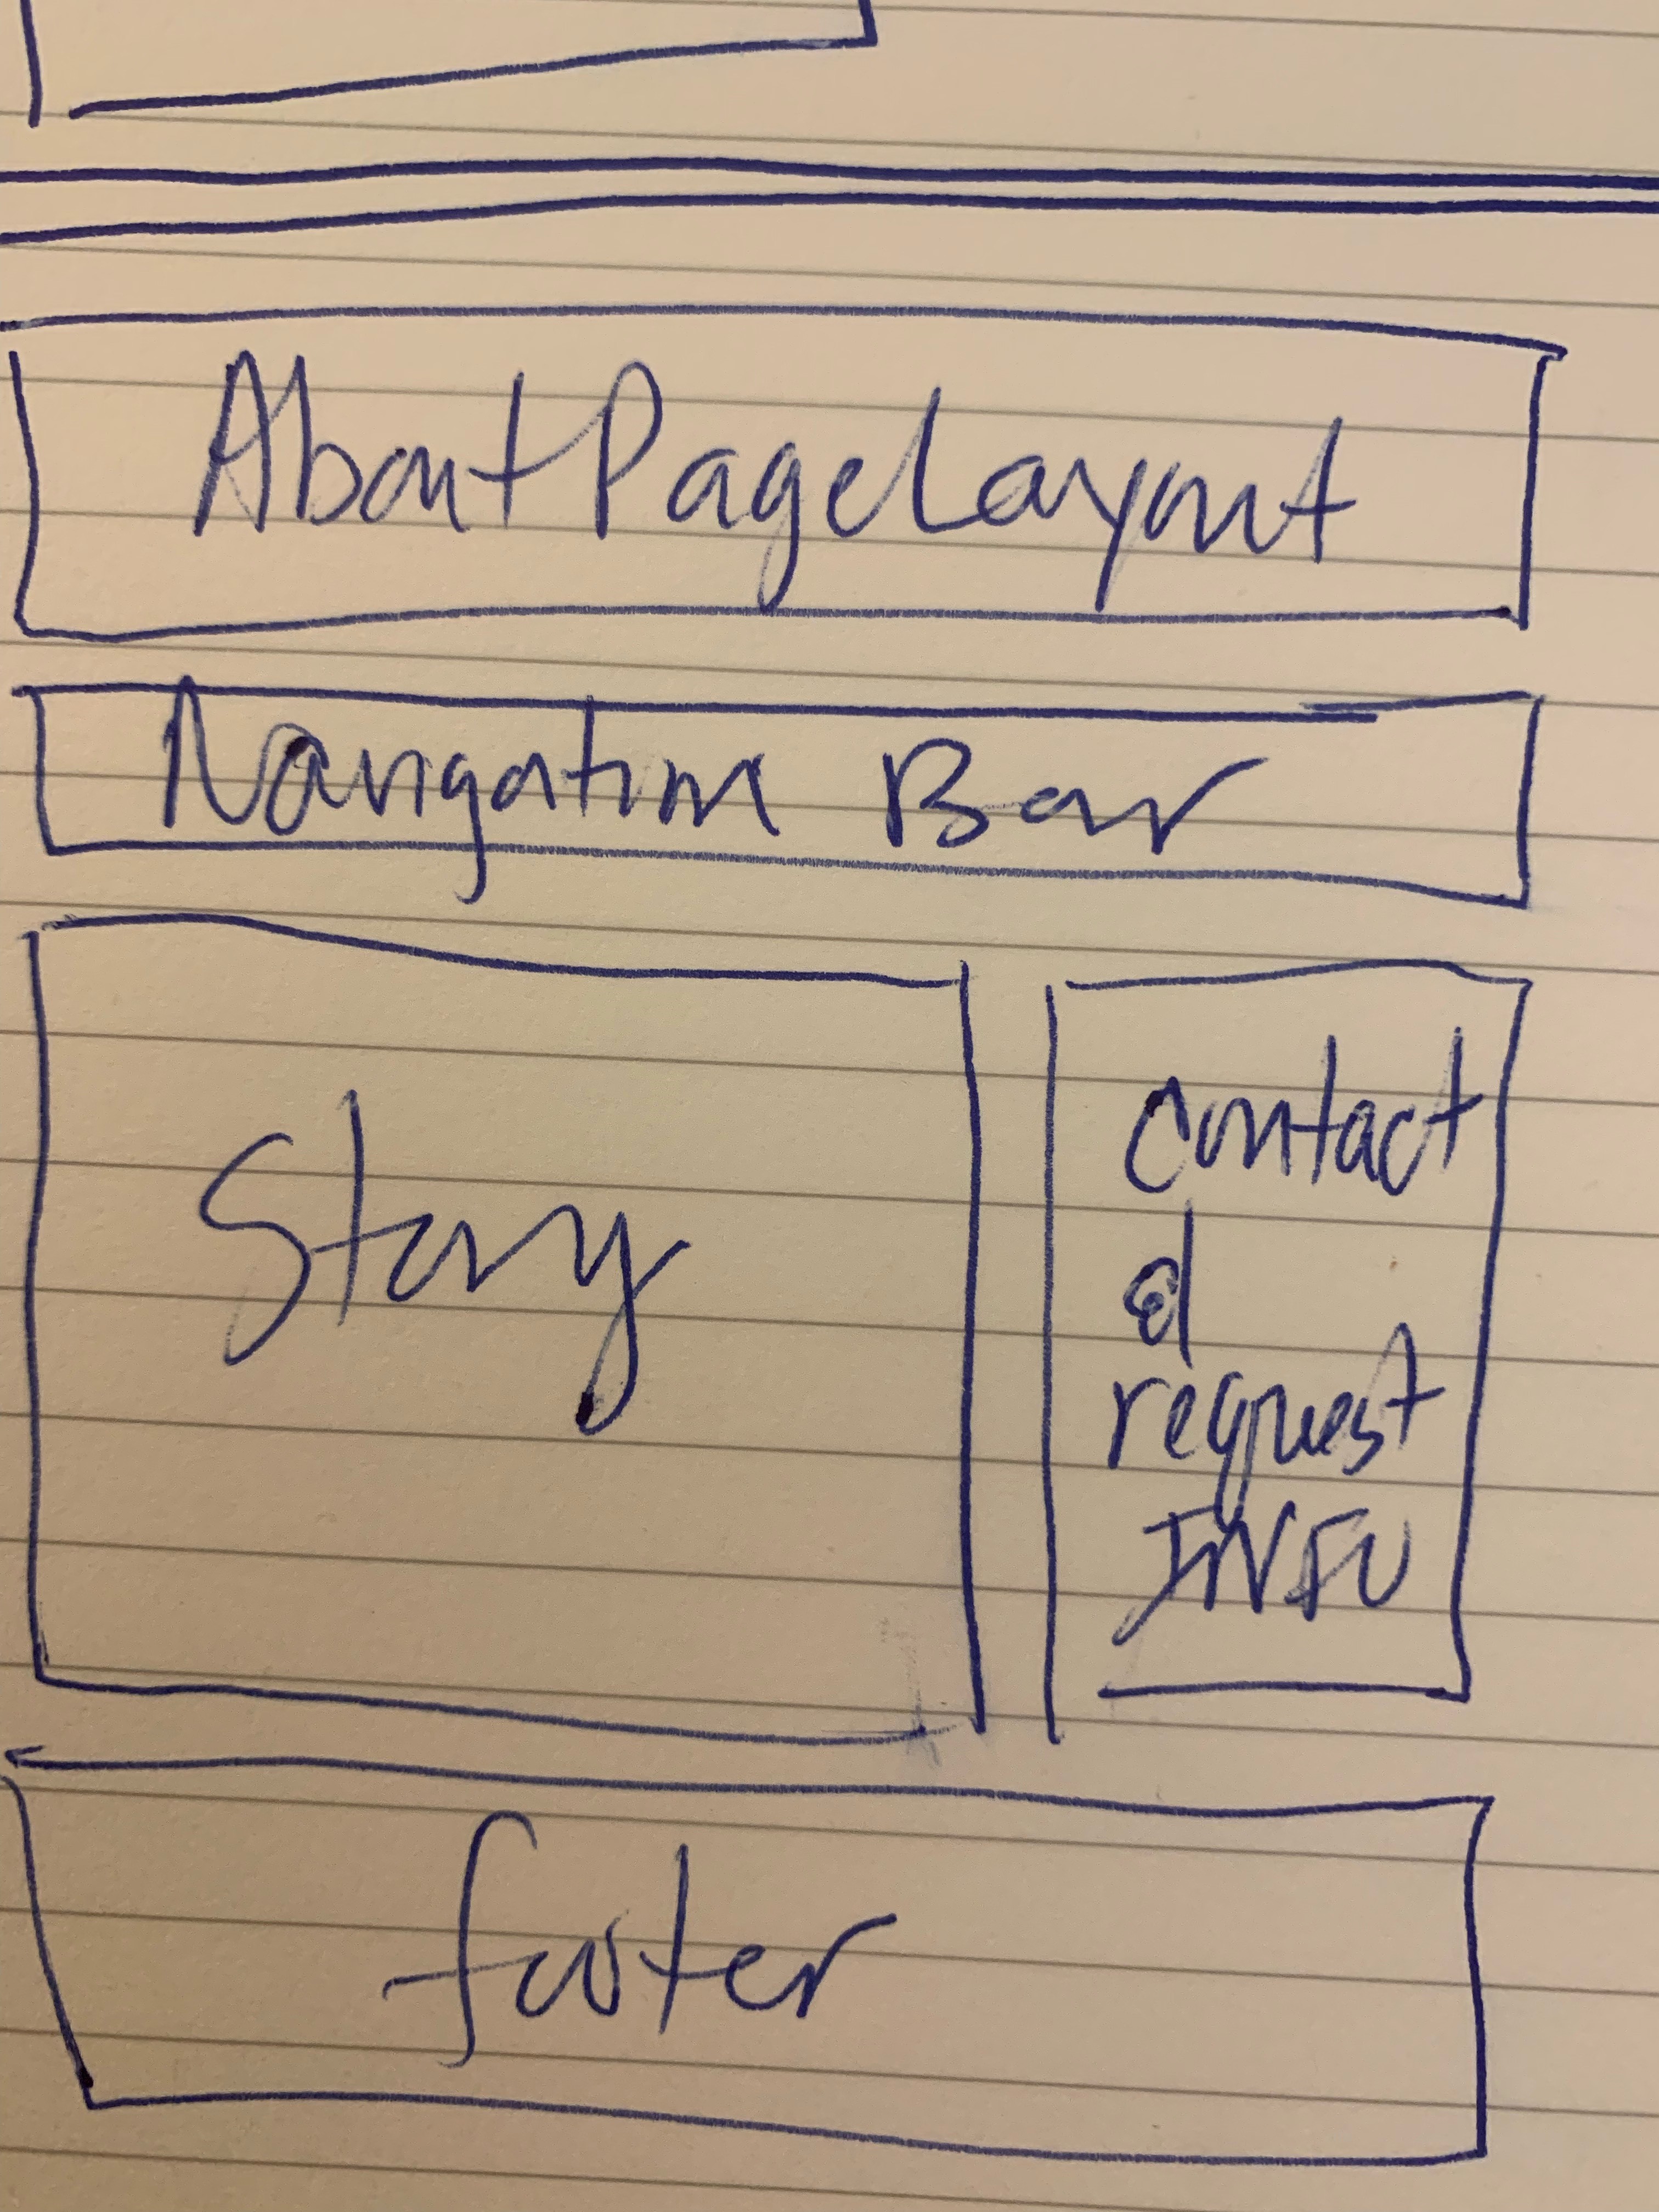 About Page Layout
Navigation Bar
Story
contact
&
request
INFO
footer